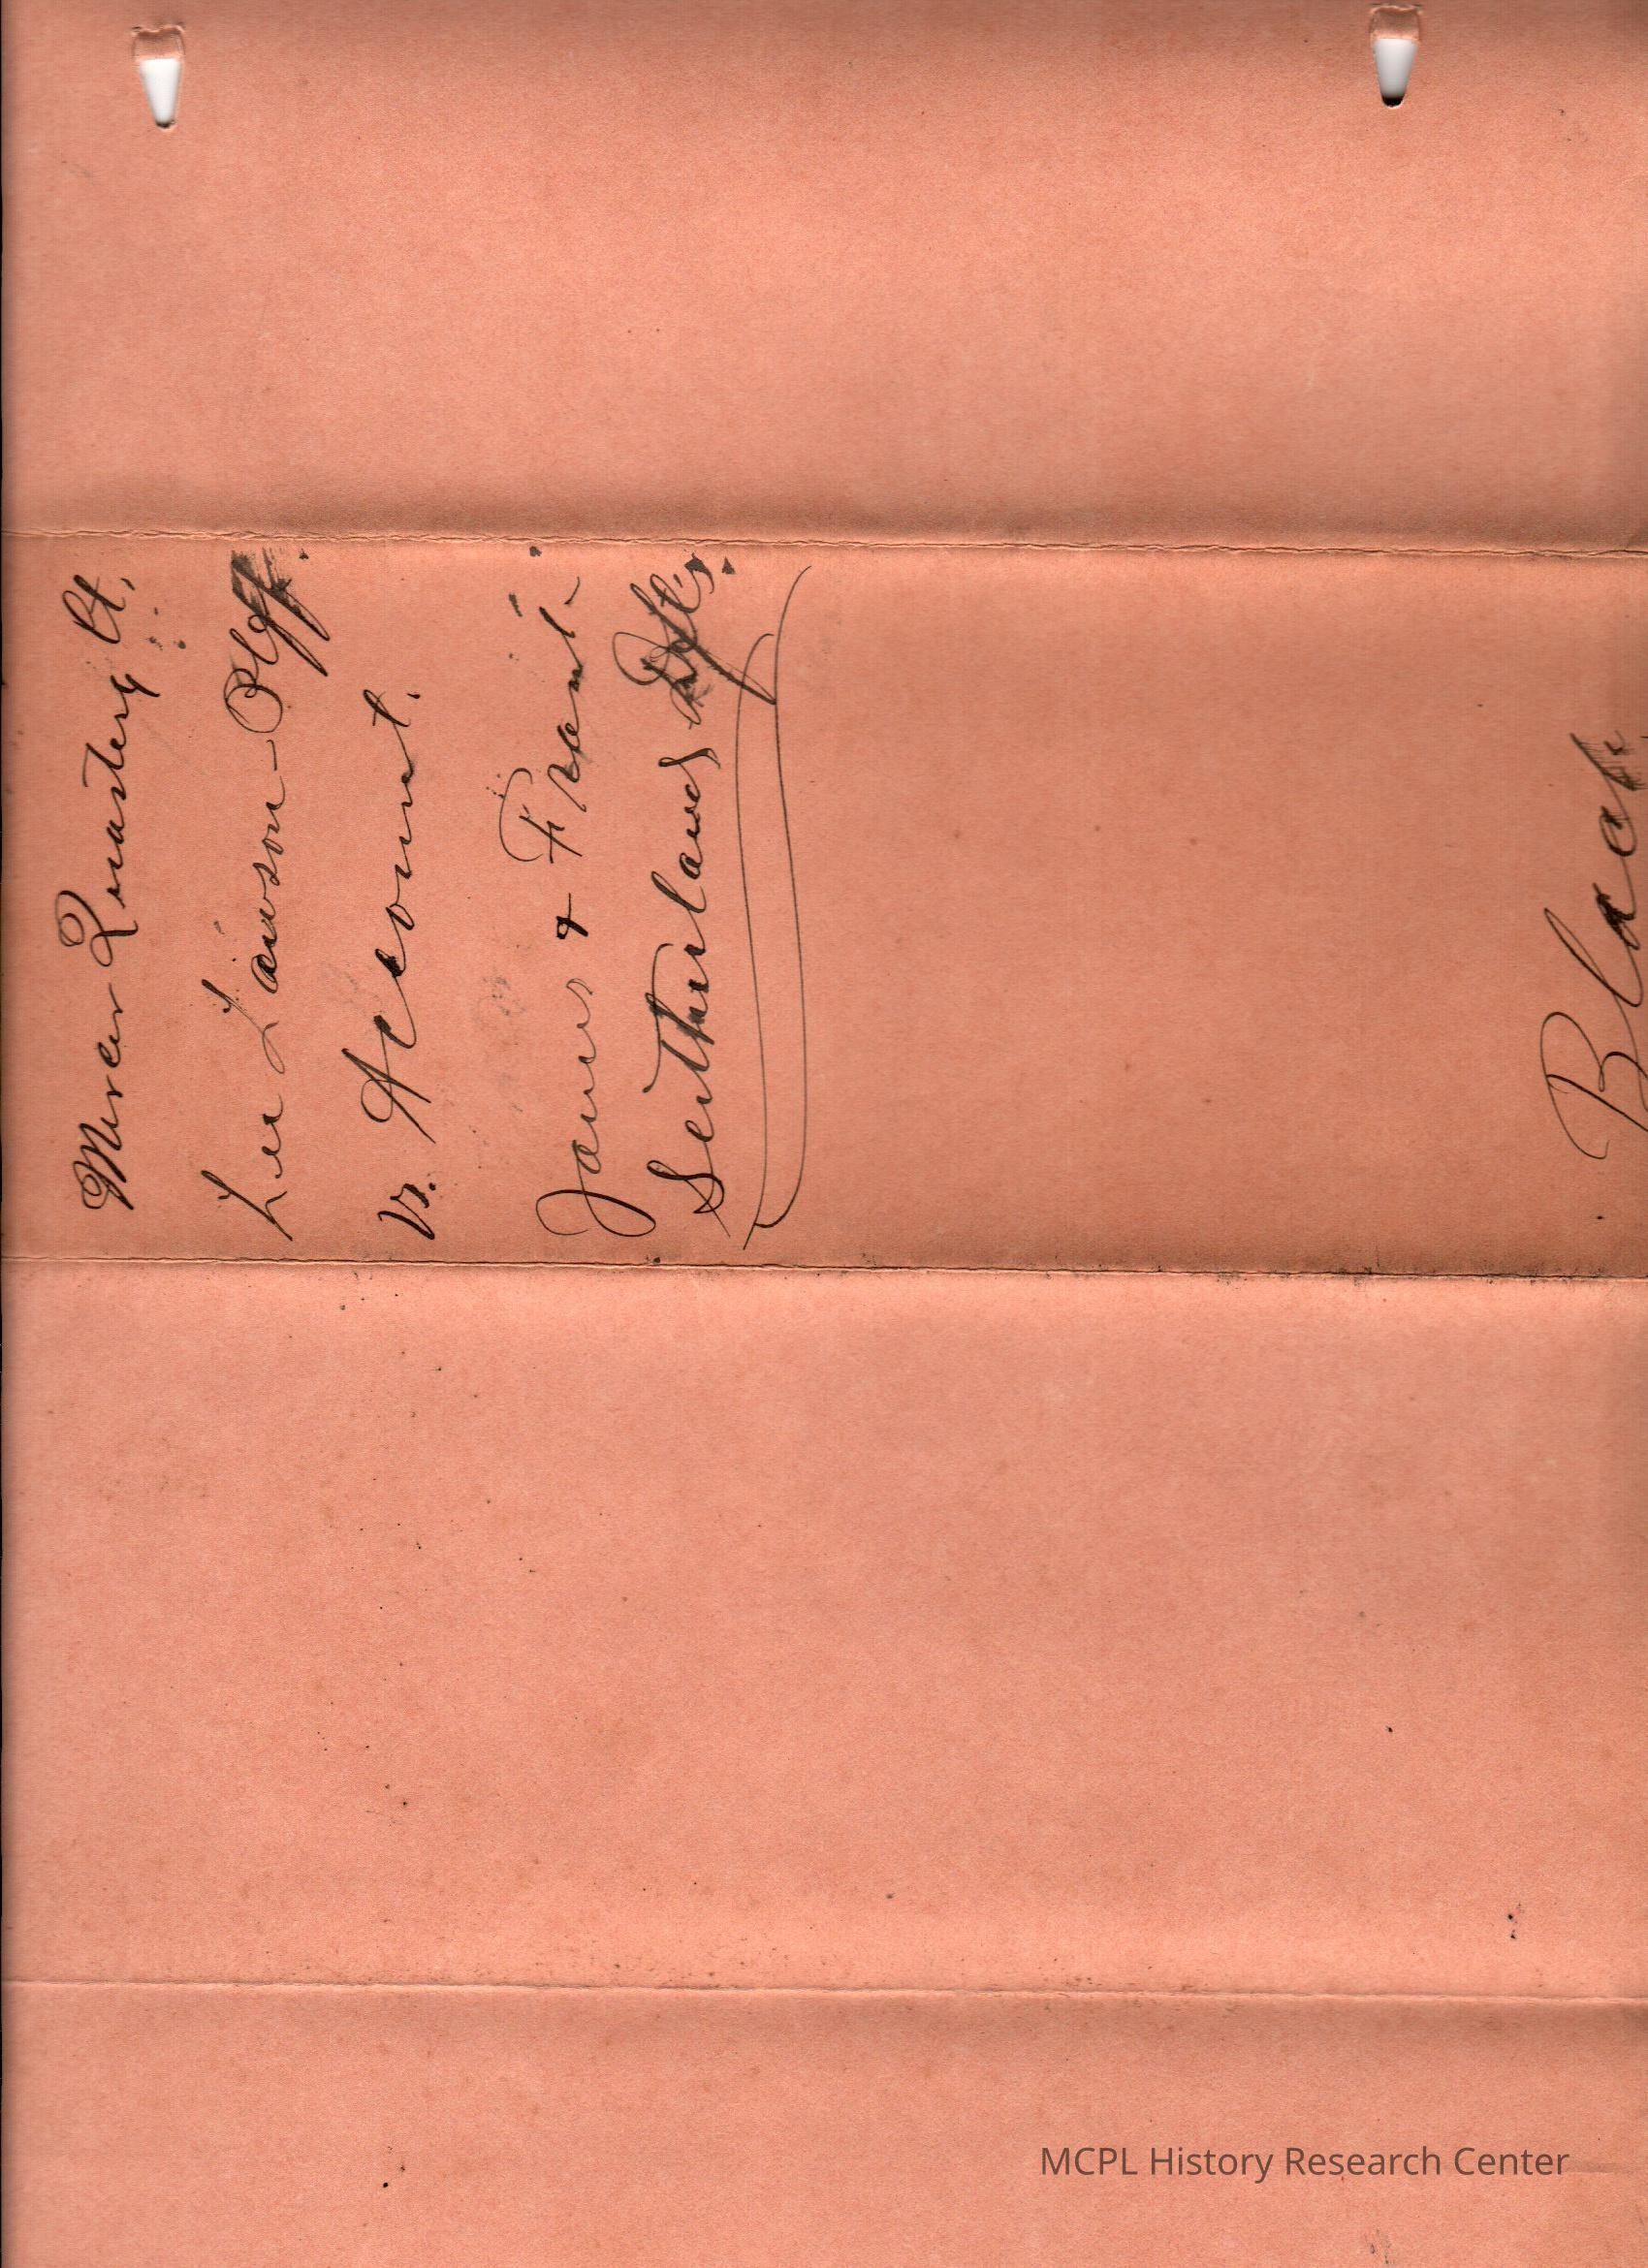 Mercer Quarterly Ct.
Lee Lawson - Plff.
vs. Account.
James & Frank
Sutherland Dfts.
Black
MCPL History Research Center